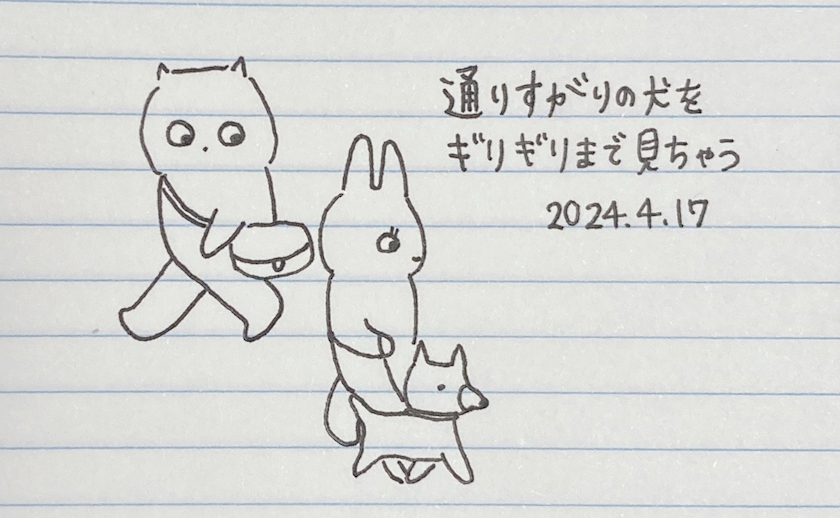 通りすがりの犬を
ギリギリまで見ちゃう
2024.4.17